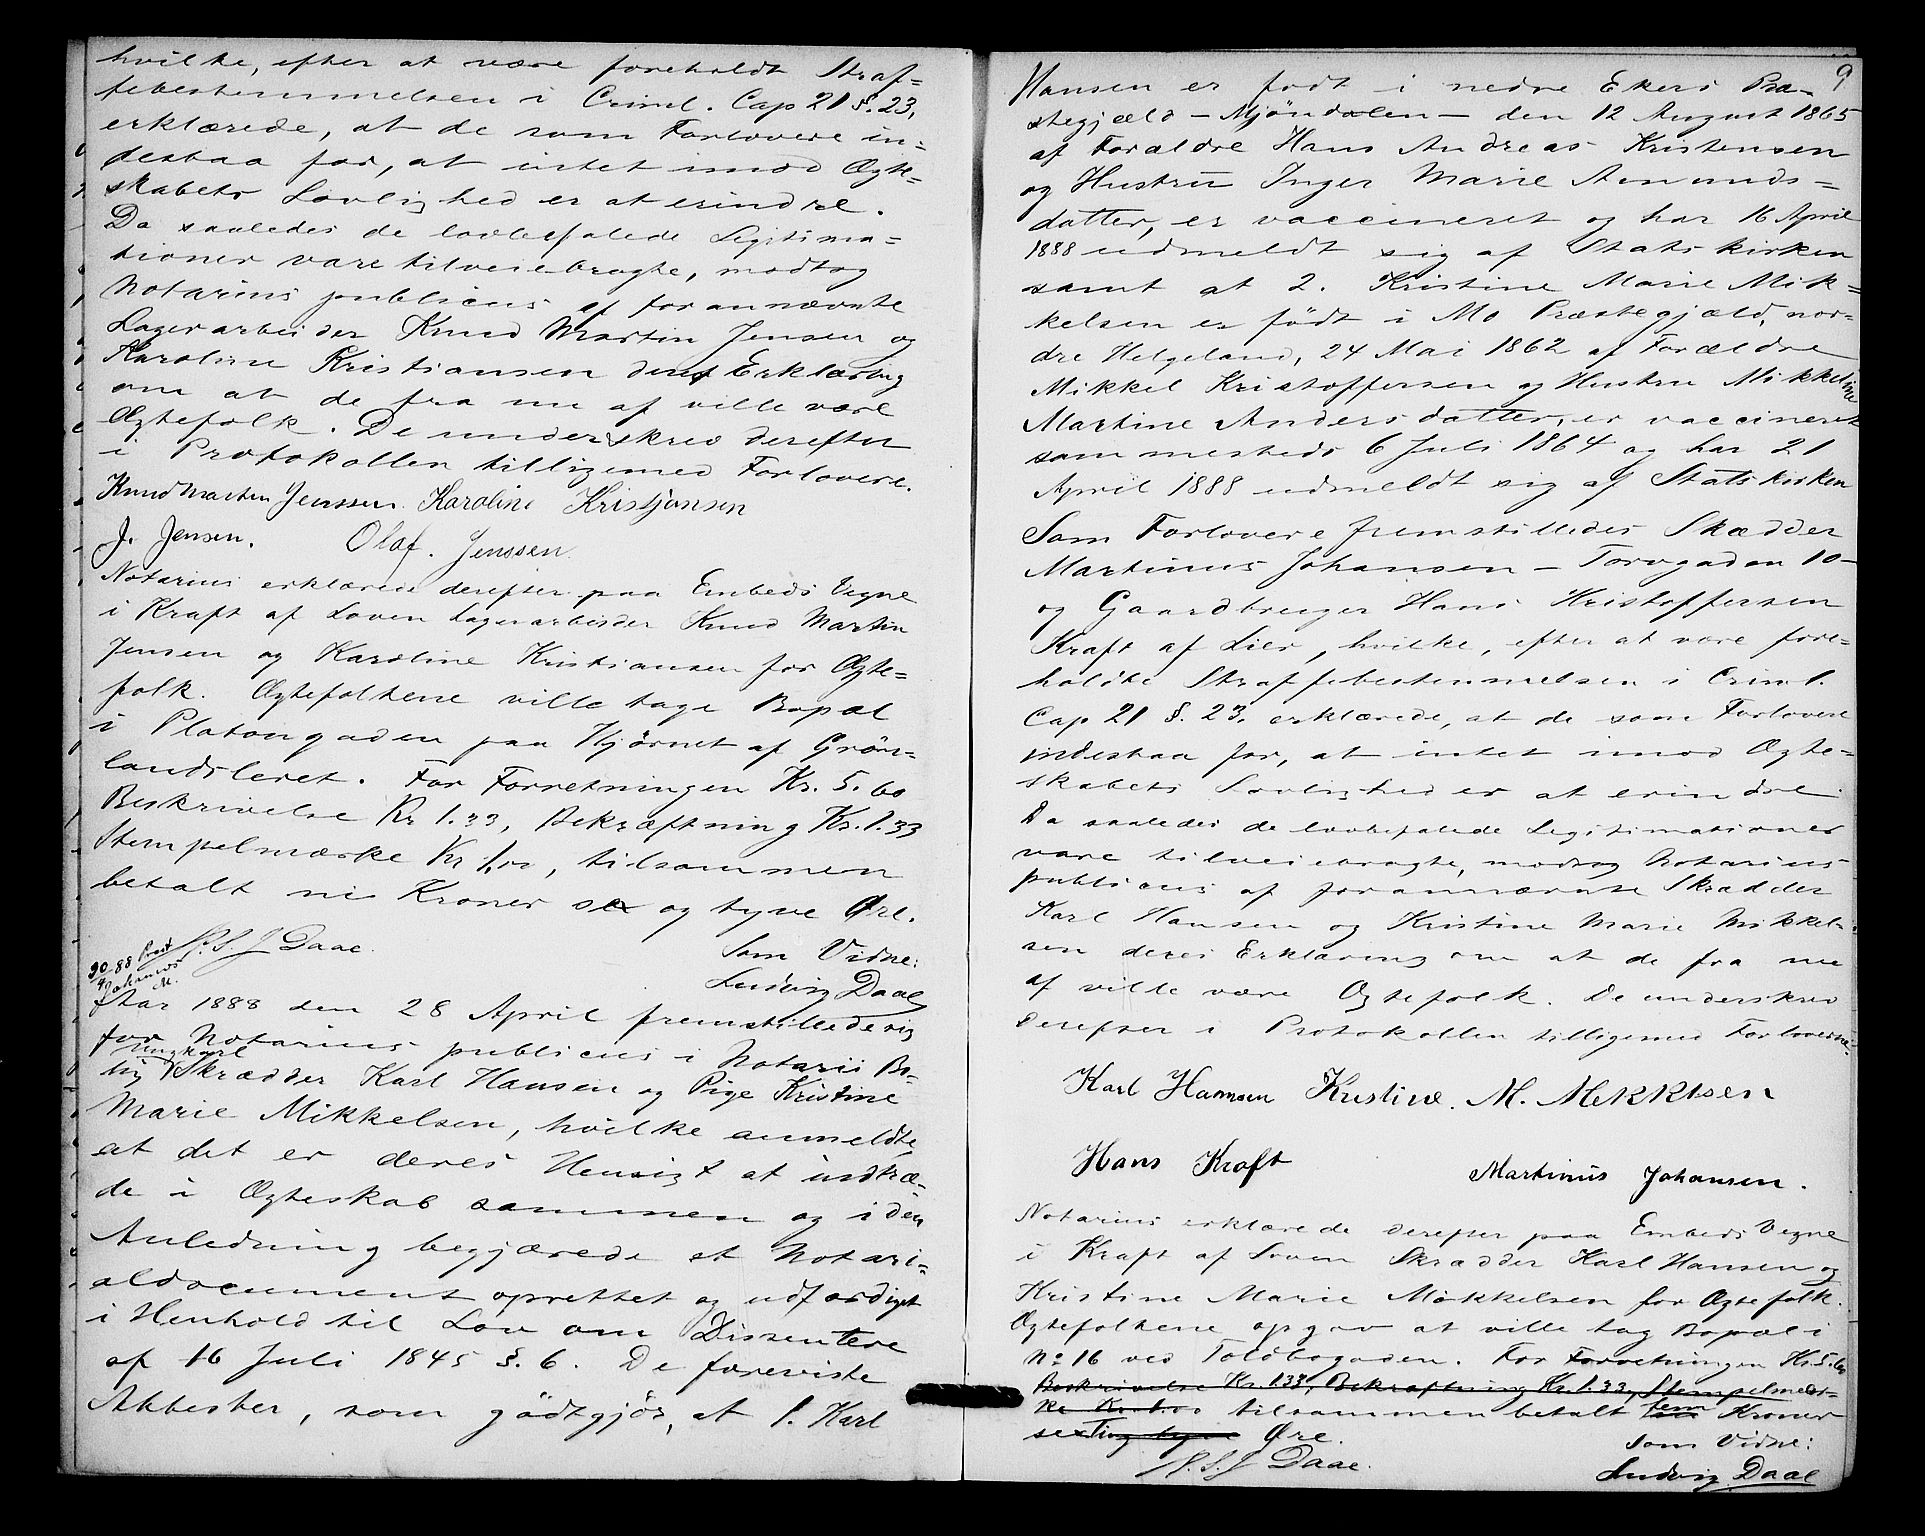 hvilke, efter at være foreholdt Straf=
febestemmelsen i Criml. Cap 21 §. 23,
erklærede, at de som Forlovere in=
destaa for, at intet imod Ægte=
skabets Lovlighed er at erindre.
Da saaledes de lovbefalede Legitima=
tioner vare tilveiebragte, modtog
Notarius publicus af forannævnte
Lagerarbeider Knud Martin Jensen og
Karoline Kristiansen deres Erklæring
om at de fra nu af ville være
Ægtefolk. De underskrev derefter
i Protokollen tilligemed Forlovere.
Knud Martin Jenssen. Karoline Kristjansen
J. Jensen. Olaf. Jenssen.
Notarius erklærede derefter paa Embeds Vegne
i Kraft af Loven Lagerarbeider Knud Martin
Jensen og Karoline Kristiansen for Ægte=
folk. Ægtefolkene ville tage Bopæl
i Platongaden paa Hjørnet af Grøn=
landsleret. For Forretningen Kr. 5.60
Beskrivelse Kr 1.33, Bekræftning Kr. 1.33
Stempelmærke Kr 1,00, tilsammen
betalt ni Kroner sex og tyve Øre.
Som Vidne:
Ludvig Daae
Aar 1888 den 28 April fremstillede sig
for Notarius publicus i Notarii Bo=
lig Ungkarl Skrædder Karl Hansen og Pige Kristine
Marie Mikkelsen, hvilke anmeldte,
at det er deres Hensigt at indtræ=
de i Ægteskab sammen og i den
Anledning begjærede et Notari=
aldocument oprettet og udfærdiget
i Henhold til Lov om Dissentere
af 16 Juli 1845 §. 6. De foreviste
Attester, som godtgjør, at 1. Karl
9
Hansen er født i nedre Ekers Præ=
stegjæld – Mjøndalen – den 12 August 1865
af Forældre Hans Andreas Kristensen
og Hustru Inger Marie Amunds=
datter, er vaccineret og har 16 April
1888 udmeldt sig af Statskirken
samt at 2. Kristine Marie Mik=
kelsen er født i Mo Præstegjæld, nor=
dre Helgeland, 24 Mai 1862 af Forældre
Mikkel Kristoffersen og Hustru Mikkeline
Martine Andersdatter, er vaccineret
sammesteds 6 Juli 1864 og har 21
April 1888 udmeldt sig af Statskirken
Som Forlovere fremstilledes Skrædder
Martinus Johansen – Torvgaden 10 –
og Gaardbruger Hans Kristoffersen
Kraft af Lier, hvilke, efter at være fore=
holdte Straffebestemmelsen i Criml.
Cap 21 §. 23. erklærede, at de som Forlovere
indestaa for, at intet imod Ægte=
skabets Lovlighed er at erindre.
Da saaledes de lovbefalede Legitimationer
vare tilveiebragte, modtog Notarius
publicus af forannævnte Skrædder
Karl Hansen og Kristine Marie Mikkel=
sen deres Erklæring om at de fra nu
af ville være Ægtefolk. De underskrev
derefter i Protokollen tilligemed Forloverne.
Karl Hansen Kristine. M. Mekklsen
Hans Kraft Martinus Johansen.
Notarius erklærede derefter paa Embeds Vegne
i Kraft af Loven Skrædder Karl Hansen og
Kristine Marie Mikkelsen for Ægtefolk.
Ægtefolkene opgav at ville tag Bopæl i
No 16 ved Toldbogaden. For Forretningen Kr. 5.60
Beskrivelse Kr. 1.33, Bekræftning Kr. 1.33, Stempelmær=
ke Kr 1.00 tilsammen betalt fem Kroner
sexti og tyve Øre.
Som Vidne:
Daae. Ludvig Daae